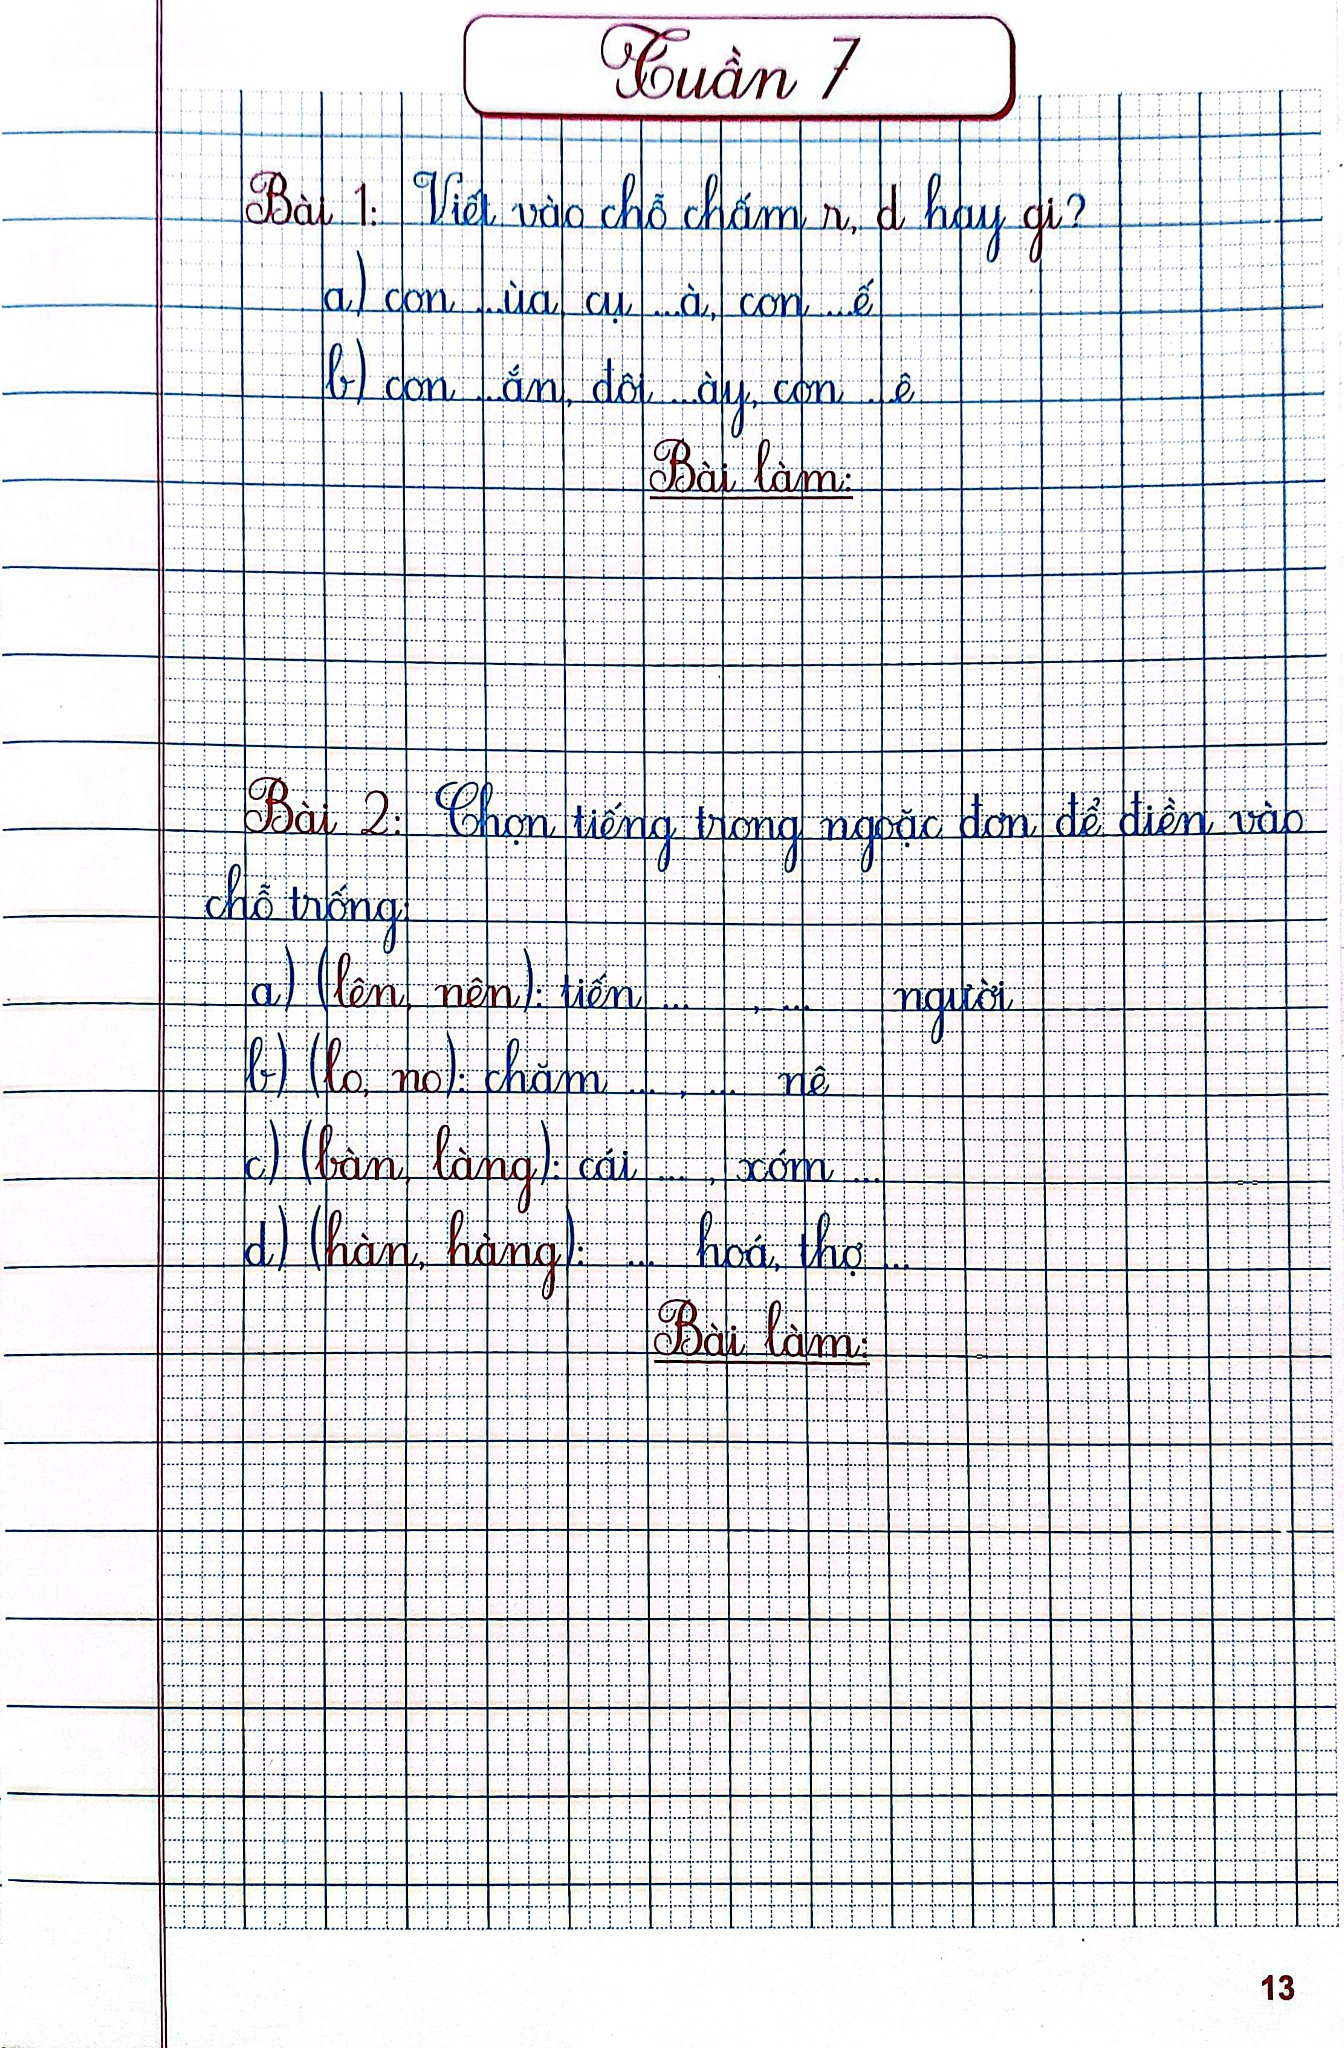 Tuần 7
Bài 1: Viết vào chỗ chấm r, d hay gi?
a) con ...ùa, cụ ...à, con ...ế
b) con ...ắn, đôi ...ày, con ...ê
Bài làm:
Bài 2: Chọn tiếng trong ngoặc đơn để điền vào
chỗ trống:
a) (lên, nên): tiến ... , ... người
b) (lo, no): chăm ... , ... nê
c) (bàn, làng): cái ... , xóm ...
d) (hàn, hàng): ... hoá, thợ ...
Bài làm:
13